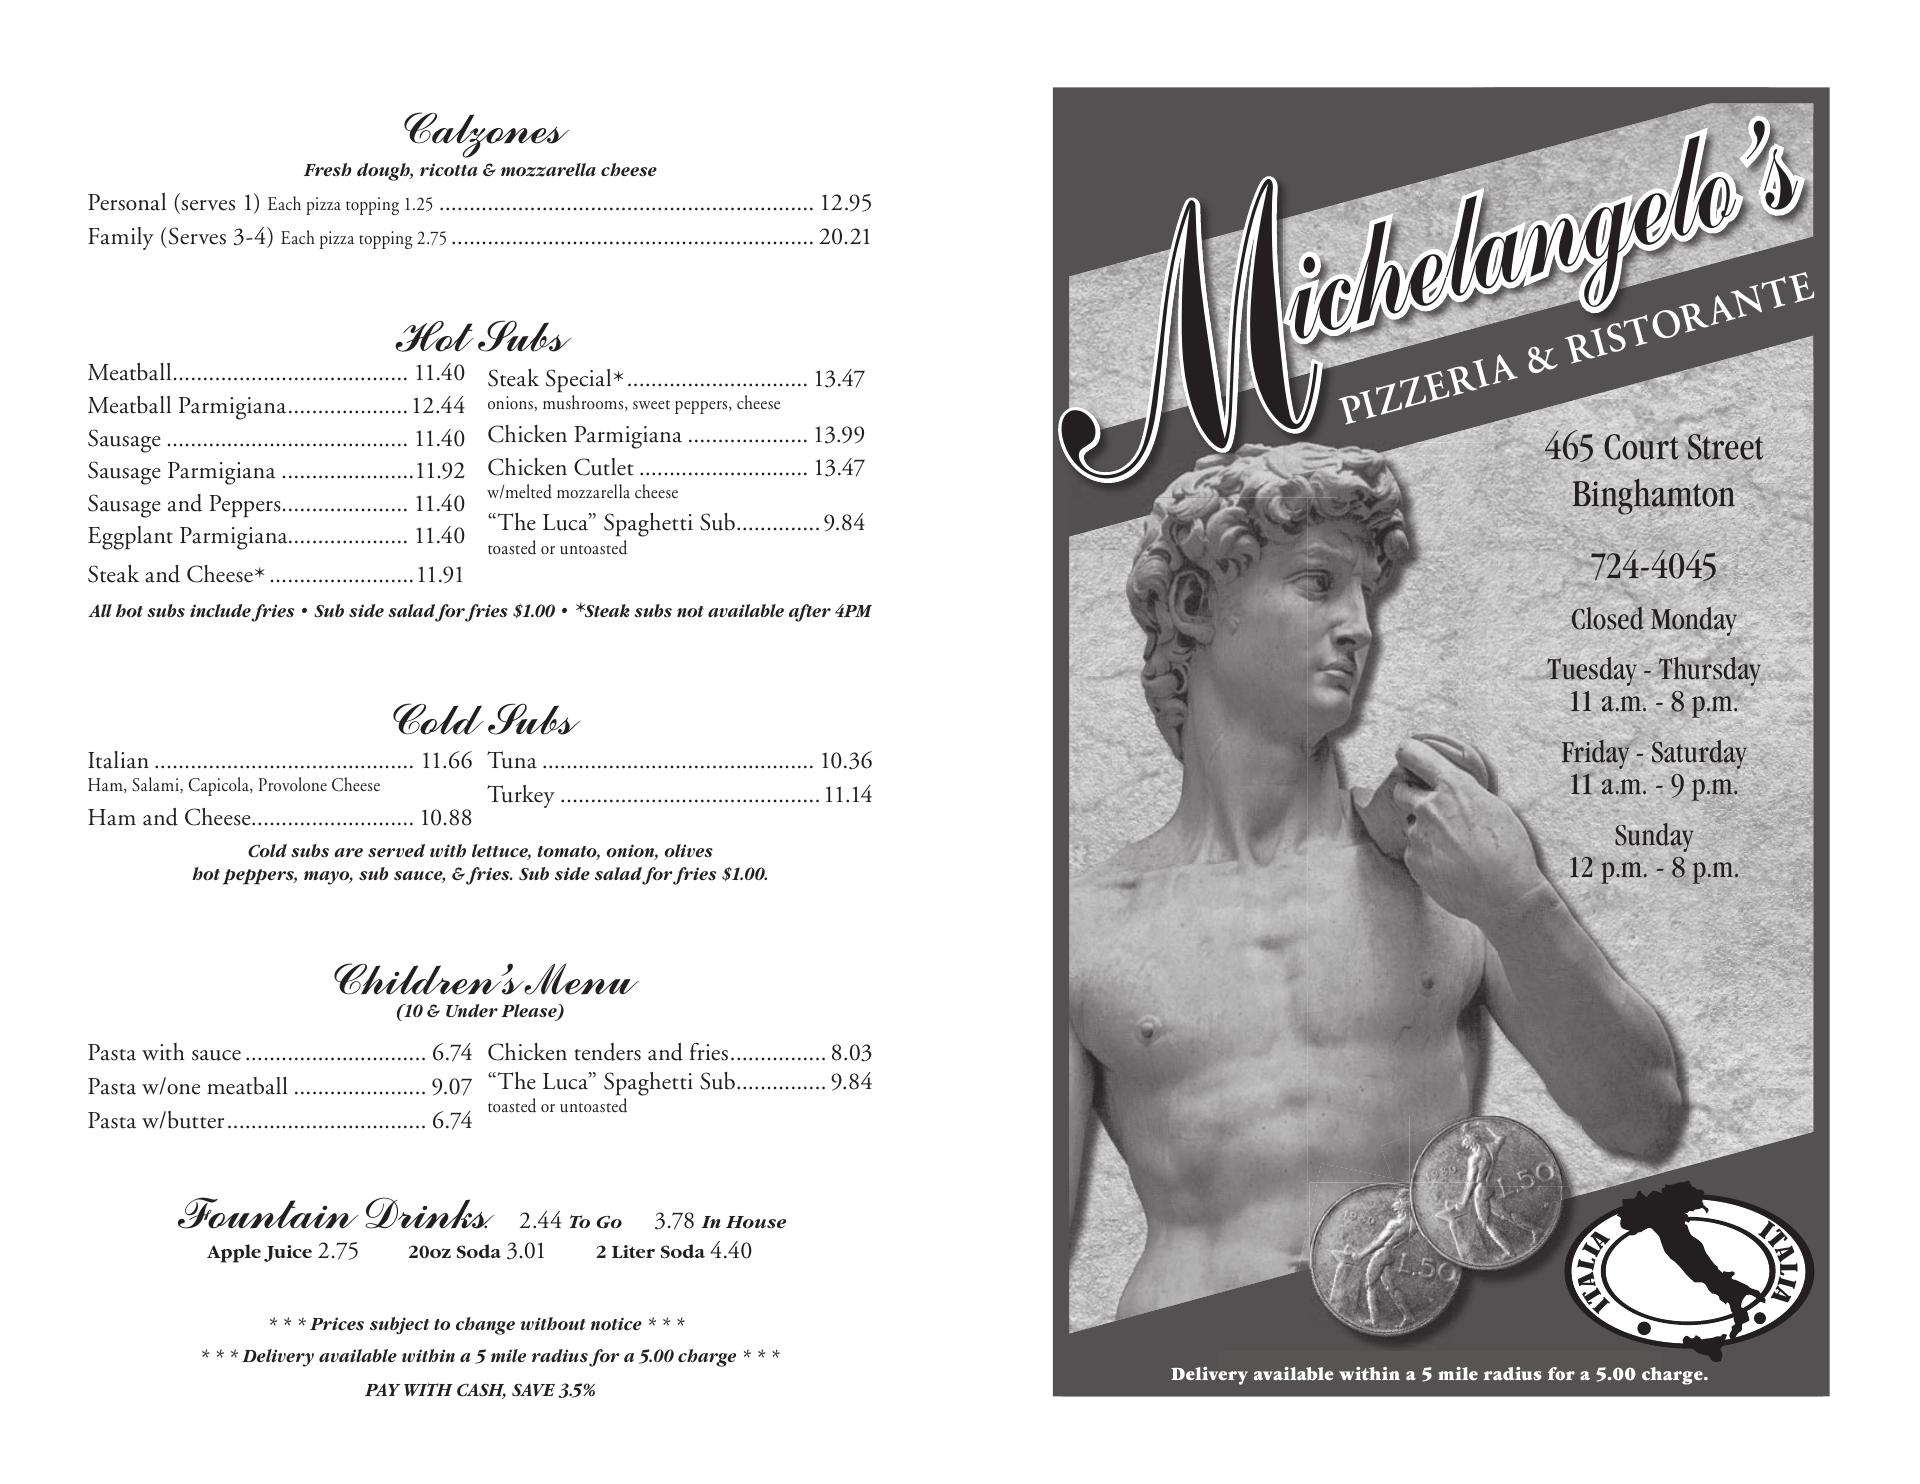 Calzones
Fresh dough, ricotta & mozzarella cheese
Personal (serves 1) Each pizza topping 1.25 ............................................................... 12.95
Family (Serves 3-4) Each pizza topping 2.75 ............................................................. 20.21
Hot Subs
Meatball....................................... 11.40
Meatball Parmigiana.................... 12.44
Sausage ........................................ 11.40
Sausage Parmigiana ......................11.92
Sausage and Peppers..................... 11.40
Eggplant Parmigiana.................... 11.40
Steak and Cheese* ........................11.91
Steak Special* .............................. 13.47
onions, mushrooms, sweet peppers, cheese
Chicken Parmigiana .................... 13.99
Chicken Cutlet ............................ 13.47
w/melted mozzarella cheese
“The Luca” Spaghetti Sub..............9.84
toasted or untoasted
All hot subs include fries • Sub side salad for fries $1.00 • *Steak subs not available after 4PM
Cold Subs
Italian ........................................... 11.66
Ham, Salami, Capicola, Provolone Cheese
Ham and Cheese........................... 10.88
Tuna ............................................. 10.36
Turkey ...........................................11.14
Cold subs are served with lettuce, tomato, onion, olives
hot peppers, mayo, sub sauce, & fries. Sub side salad for fries $1.00.
Children’s Menu
(10 & Under Please)
Pasta with sauce .............................. 6.74
Pasta w/one meatball ...................... 9.07
Pasta w/butter ................................. 6.74
Chicken tenders and fries................ 8.03
“The Luca” Spaghetti Sub............... 9.84
toasted or untoasted
Fountain Drinks. 2.44 To Go 3.78 In House
Apple Juice 2.75 20oz Soda 3.01 2 Liter Soda 4.40
* * * Prices subject to change without notice * * *
* * * Delivery available within a 5 mile radius for a 5.00 charge * * *
PAY WITH CASH, SAVE 3.5%
Michelangelo’s
PIZZERIA & RISTORANTE
465 Court Street
Binghamton
724-4045
Closed Monday
Tuesday - Thursday
11 a.m. - 8 p.m.
Friday - Saturday
11 a.m. - 9 p.m.
Sunday
12 p.m. - 8 p.m.
1980
L.50
1980
L.50
ITALIA
ITALIA
Delivery available within a 5 mile radius for a 5.00 charge.